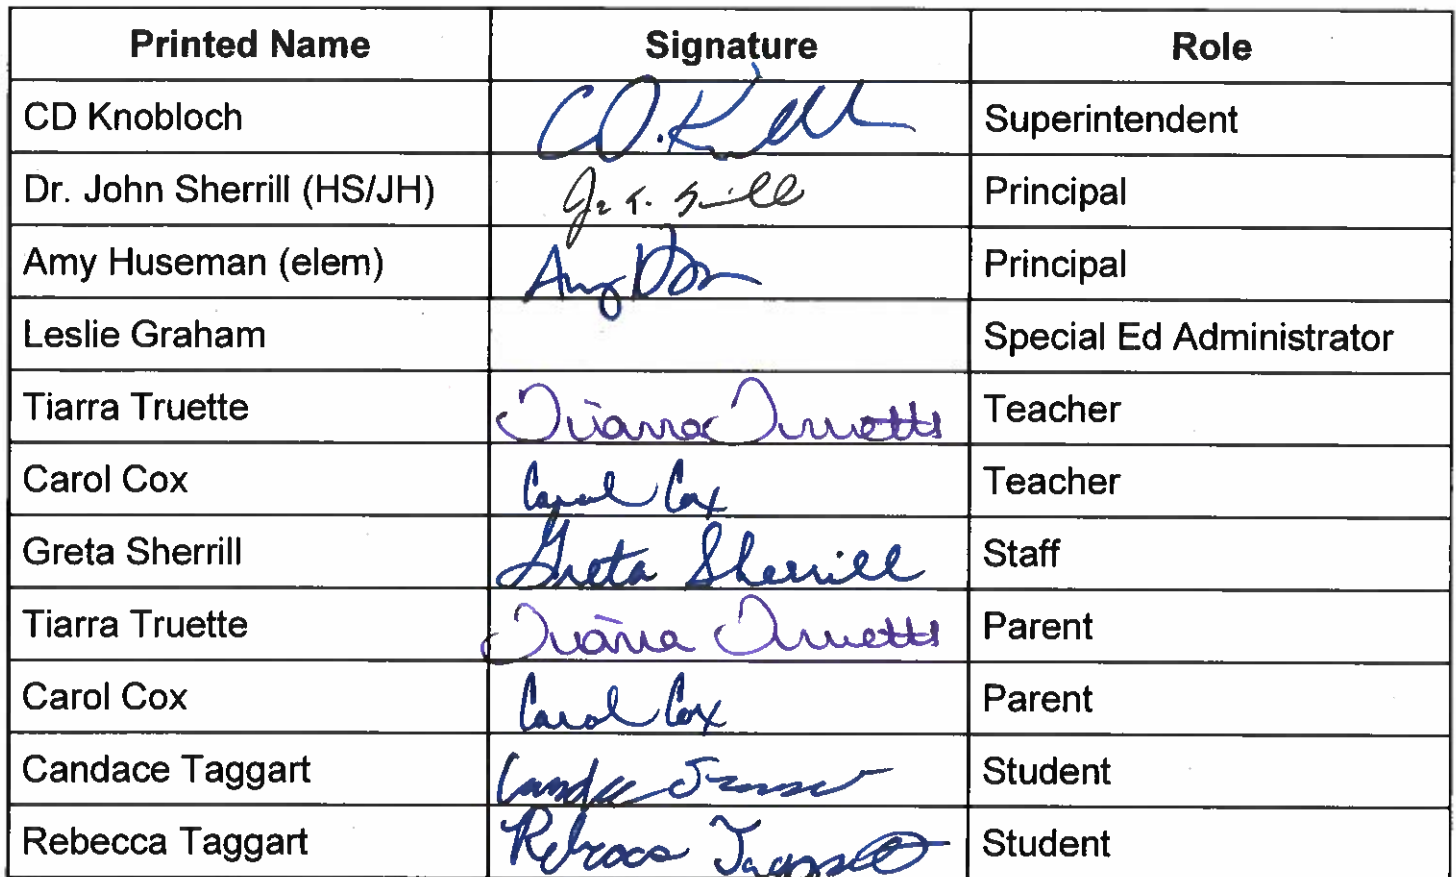 Printed Name Signature Role
CD Knobloch CD. K Superintendent
Dr. John Sherrill (HS/JH) Principal
Amy Huseman (elem) Amy Principal
Leslie Graham Special Ed Administrator
Tiarra Truette Tiarra Truette Teacher
Carol Cox Carol Cox Teacher
Greta Sherrill Greta Sherrill Staff
Tiarra Truette Tiarra Truette Parent
Carol Cox Carol Cox Parent
Candace Taggart Candace Student
Rebecca Taggart Rebecca Taggart Student